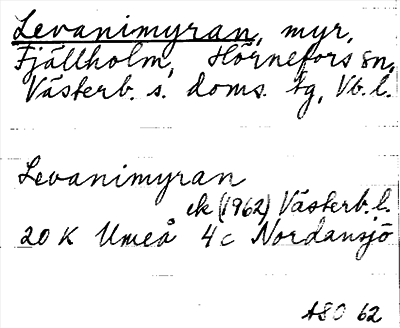 Levanimyran, myr,
Fjällholm, Hörnefors sn,
Västerb. s. doms. tg, Vb. l.
Levanimyran
ek (1962) Västerb. l.
20 K Umeå 4c Nordansjö
ASO 62